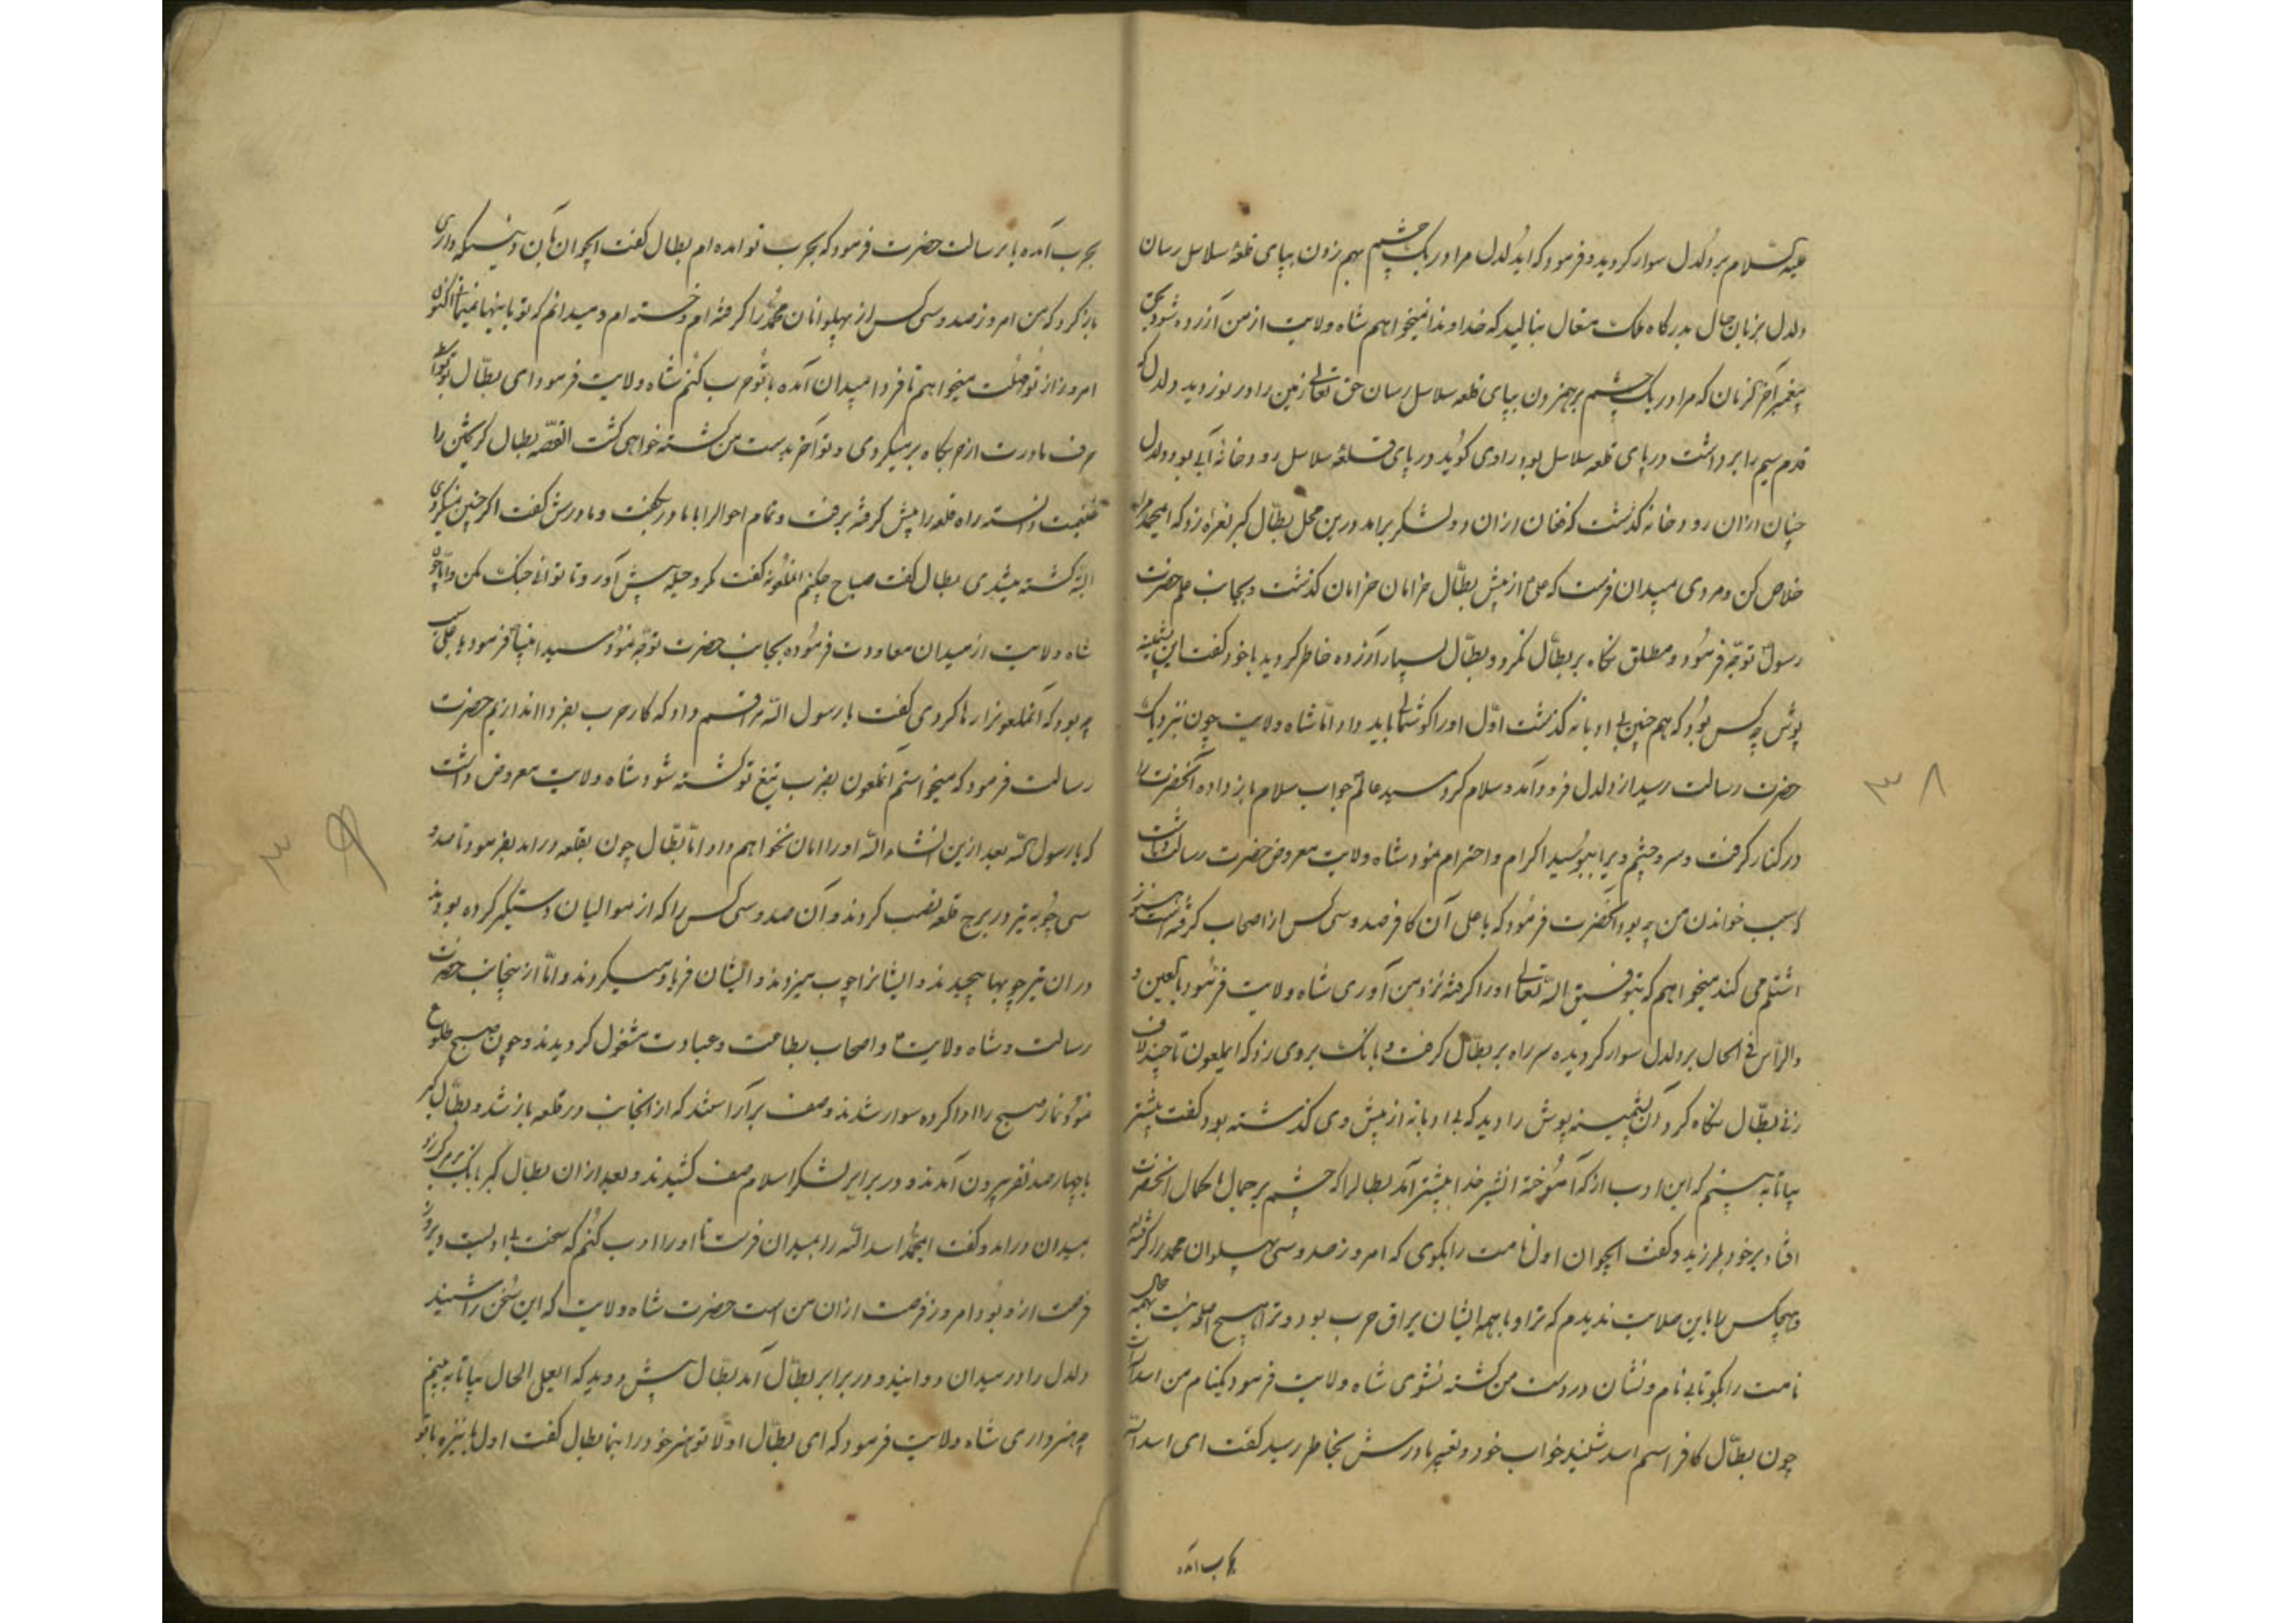 علیه السلام بر دلدل سوار کردید و فرمود که ایدلدل مرا در یک چشم بهم زدن بپای قلعهٔ سلاسل رسان
دلدل بزبان حال بدرکاه ملک متعال بنالید که خداوندا نمیخواهم شاه ولایت از من آزرده شود بحق
پیغمبر آخر الزمان که مرا در یک چشم برهم زدن بپای قلعه سلاسل رسان حق تعالی زمین را در نوردید دلدل که
قدم سیم را برداشت در پای قلعه سلاسل بود راوی کوید در پای قلعهٔ سلاسل رودخانهٔ آبی بود و دلدل
چنان ازان رودخانه کذشت که فغان ازان دو لشکر برامد درین محل بطّال کبر نعره زد که ایمحمد مرا
خلاص کن و مردی میدان فرست که علی از پیش بطّال خرامان خرامان کذشت و بجانب علم حضرت
رسول توجه فرمود و مطلق نکاه بر بطّال نکرد و بطّال بسیار آزرده خاطر کردید با خود کفت این پشمینه
پوش چه کس بود که هم چنین بی ادبانه کذشت اوّل او را کوشمالی باید داد امّا شاه ولایت چون بنزدیک
حضرت رسالت رسید از دلدل فرود آمد و سلام کرد سید عالم جواب سلام باز داده آنحضرت را
در کنار کرفت و سر و چشم ویرا ببوسید اکرام و احترام نمود شاه ولایت معروض حضرت رسالت داشت
که سبب خواندن من چه بود آنحضرت فرمود که یا علی آن کافر صد و سی کس از اصحاب کرفته است هنوز
اشتلم می کند میخواهم که بتوفیق الله تعالی او را کرفته نزد من آوری شاه ولایت فرمود بالعین و
والراس فی الحال بر دلدل سوار کردیده سر راه بر بطّال کرفت و بانک بروی زد که ایملعون تا چند لاف
زنی بطّال نکاه کرد آن پشمینه پوش را دید که بی ادبانه از پیش وی کذشته بود کفت پیشتر
بیا تا به بینم که این ادب از که آموخته انشیر خدا پیشتر آمد بطالرا که چشم بر جمال با کمال آنحضرت
افتاد بر خود بلرزید و کفت ایجوان اول نامت را بکوی که امروز صد و سی پهلوان محمد را کرفته
و هیچکس را باین صلابت ندیدم که ترا و با همه ایشان یراق حرب بود و ترا هیچ اسلحه نیست بهمه حال
نامت را بکو تا بی نام و نشان در دست من کشته نشوی شاه ولایت فرمود یکنام من اسد الله است
چون بطّال کافر اسم اسد شنید خواب خود و تعبیر مادرش بخاطر رسید کفت ای اسد الله
بحرب آمده
بحرب آمده یا برسالت حضرت فرمود که بحرب تو امده ام بطال کفت ایجوان نان و نمکی که داری
باز کرد که من امروز صد و سی کس از پهلوانان محمد را کرفته ام و خسته ام و میدانم که تو باینها نمیمانی اکنون
امروز از تو مهلت میخواهم تا فردا میدان آمده با تو حرب کنم شاه ولایت فرمود ای بطّال تو
حرف مادرت از جایکاه بر میکردی و تو آخر بدست من کشته خواهی کشت القصّه بطال کریختن را
غنیمت دانسته راه قلعه را پیش کرفته برفت و تمام احوالرا با مادر بکفت و مادرش کفت اکر چنین نمیکردی
البته کشته میشدی بطال کفت صباح چکنم انملعونه کفت مکر و حیله پیش آور و تا توانی جنک مکن و امّا چون
شاه ولایت از میدان معاودت فرموده بجانب حضرت توجه نمود سید انبیا فرمود یا علی سبب
چه بود که انملعونرا رها کردی کفت یا رسول الله مرا قسم داد که کار حرب بفردا اندازیم حضرت
رسالت فرمود که میخواستم آنملعون بضرب تیغ تو کشته شود شاه ولایت معروض داشت
که یا رسول الله بعد ازین انشاء الله او را امان نخواهم داد امّا بطّال چون بقلعه درامد بفرمود تا صد و
سی چوبه تیر در برج قلعه نصب کردند و آن صد و سی کس را که از موالیان دستکیر کرده بودند
دران تیر چوبها پیچیدند و ایشانرا چوب میزدند و ایشان فریاد میکردند و امّا از ینجانب حضرت
رسالت و شاه ولایت و اصحاب بطاعت و عبادت مشغول کردیدند و چون صبح طلوع
نمود نماز صبح را ادا کرده سوار شدند و صف برآراستند که از انجانب در قلعه باز شد و بطّال کبر
با چهار صد نفر بیرون آمدند و در برابر لشکر اسلام صف کشیدند و بعد ازان بطّال کبر بانک بر مرکب زد
بمیدان درامد و کفت ایمحمد اسد الله را بمیدان فرست تا او را ادب کنم که سخت بی ادبست دیروز
فرصت ازو بود امروز فرصت ازان من است حضرت شاه ولایت که این سخن را شنید
دلدل را در میدان دوانید و در برابر بطّال آمد بطّال پیش دوید که ایعلی الحال بیا تا به بینم
چه هنر داری شاه ولایت فرمود که ای بطّال اولا تو هنر خود را بنما بطال کفت اول بنیزه با تو